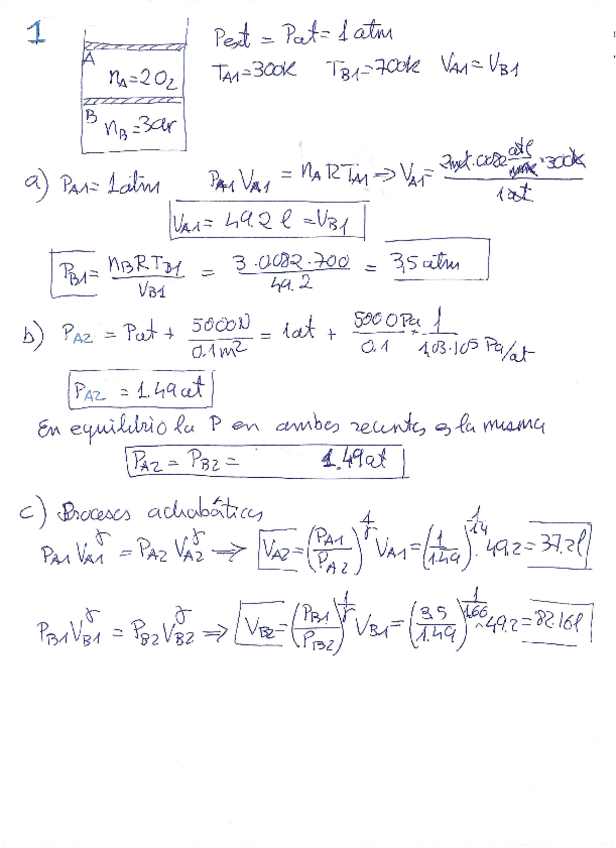 1
Pext = Pat = 1 atm
A
nA=2 O2
TA1=300k TB1=700k VA1=VB1
B nB=3ar
a) PA1=1atm PA1 VA1 = nA R TA1 ⇒ VA1= 2mol·0.082 atl/molk ·300k / 1at
VA1= 49.2 l = VB1
PB1= nB R TB1 / VB1 = 3·0.082·700 / 49.2 = 3,5 atm
b) PA2 = Pat + 5000N / 0.1m² = 1at + 5000Pa / 0.1 · 1 / 1,03·10⁵ Pa/at
PA2 = 1.49at
En equilibrio la P en ambos recintos es la misma
PA2 = PB2 = 1.49at
c) Procesos adiabáticos
PA1 VA1^γ = PA2 VA2^γ ⇒ VA2=(PA1/PA2)^1/γ VA1=(1/1.49)^1/1.4 · 49.2 = 37.2l
PB1 VB1^γ = PB2 VB2^γ ⇒ VB2=(PB1/PB2)^1/γ VB1=(3,5/1.49)^1/1.66 · 49.2 = 82.16l